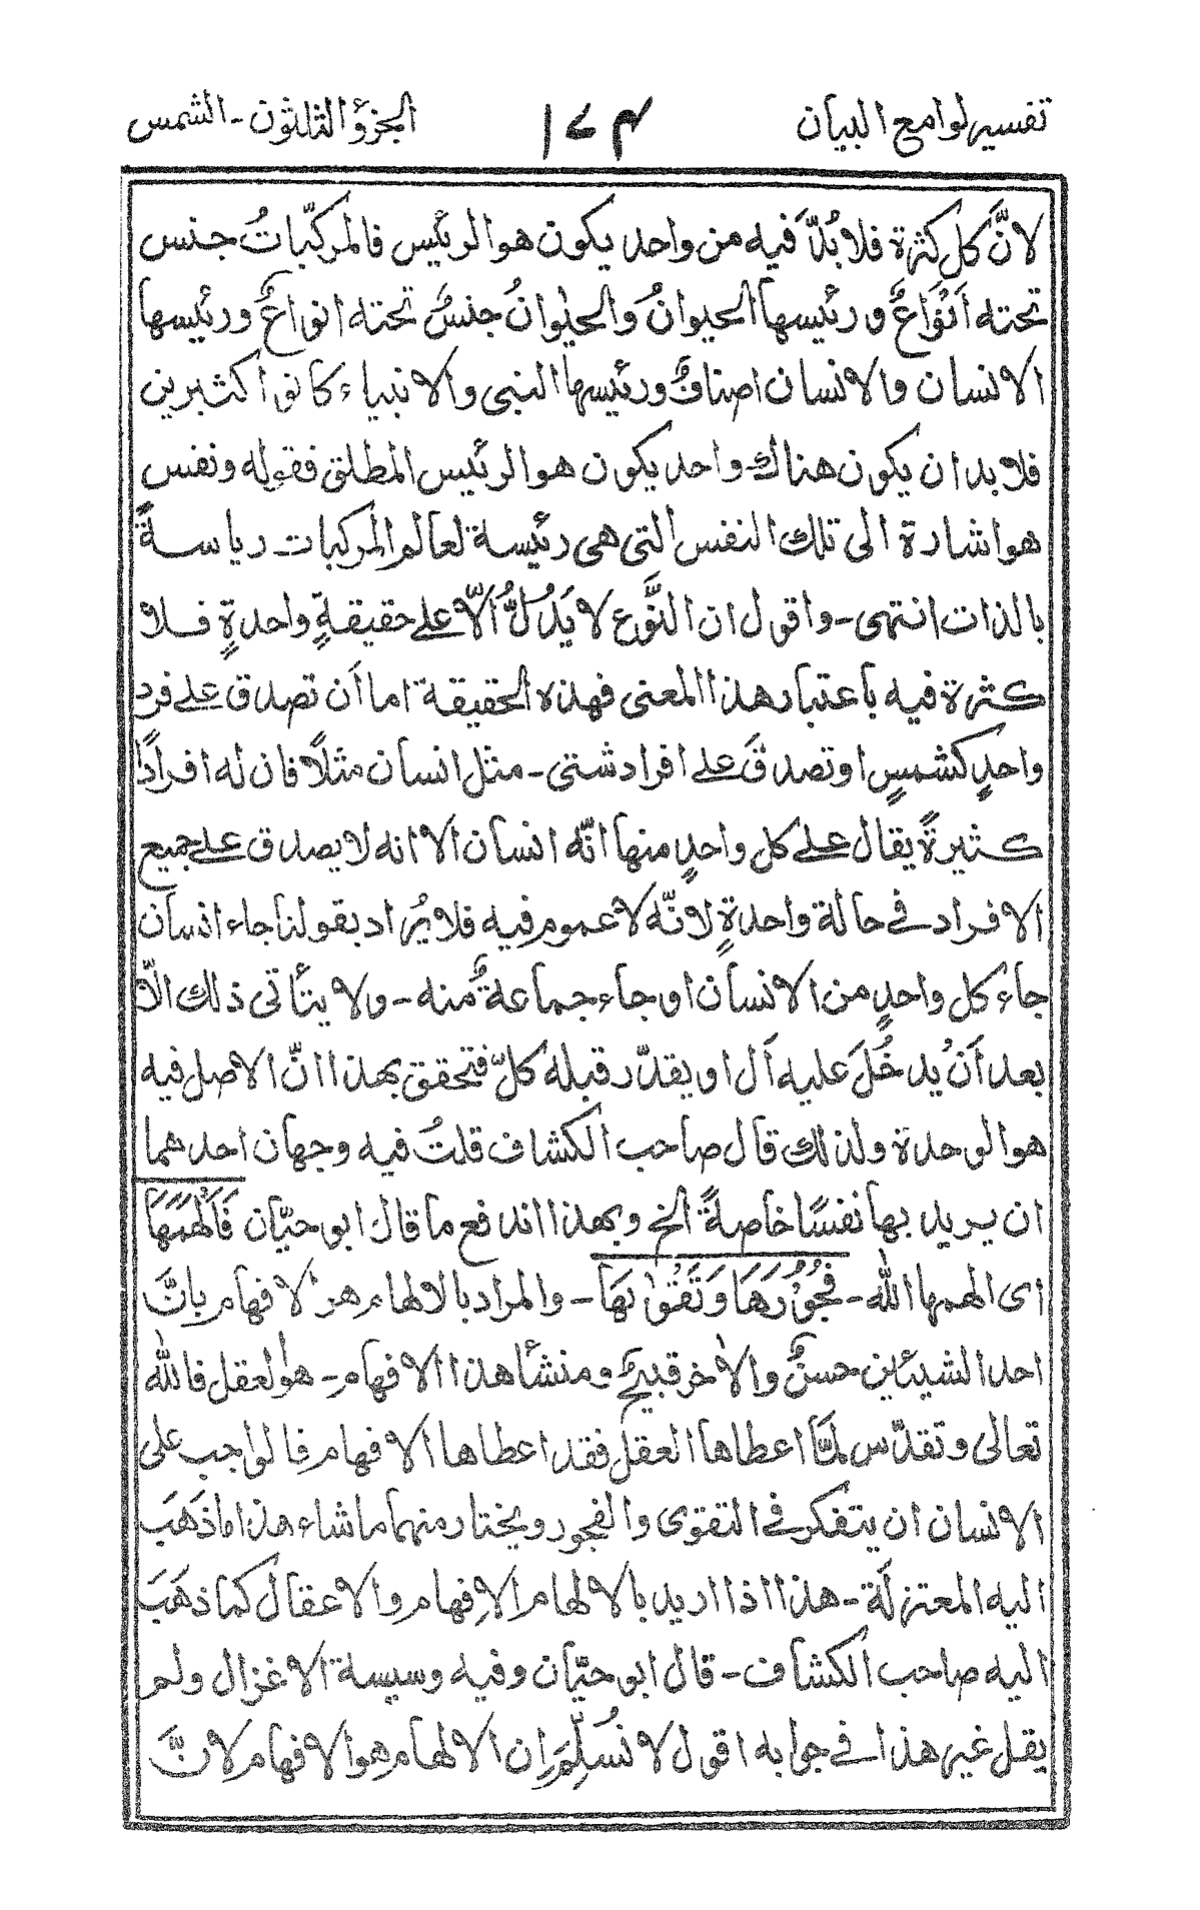 تفسير لوامع البيان ١٧٤ الجزؤ الثلثون - الشمس
لانَّ كل كثرة فلا بُدَّ فيه من واحد يكون هو الرئيس فالمركّباتُ جنس
تحته اَنْوَاعٌ و رئيسها الحيوانُ والحيٰوانُ جنسٌ تحته انواعٌ ورئيسها
الانسان والانسان اصنافٌ ورئيسها النبى والانبياء كانوا كثيرين
فلا بد ان يكون هناك واحد يكون هو الرئيس المطلق فقوله ونفس
هو اشارة الى تلك النفس التى هى رئيسة لعالم المركبات رياسةً
بالذات انتهى - واقول ان النَّوع لا يَدُلُّ الّا على حقيقةٍ واحدةٍ فلا
كثرة فيه باعتبار هذا المعنى فهذه الحقيقة اما اَن تصدق على فرد
واحدٍ كشمسٍ او تصدقَ على افراد شتى - مثل انسان مثلًا فان له افرادًا
كثيرةً يقال على كل واحدٍ منها انّه انسان الا انه لا يصدق على جميع
الافراد فى حالة واحدةٍ لانّه لا عموم فيه فلا يُراد بقولنا جاء انسان
جاء كل واحدٍ من الانسان او جاء جماعةٌ منه - ولا يتأتى ذلك الّا
بعد اَنْ يدخُلَ عليه اَل او يقدّر قبله كلّ فتحقق بهذا انّ الاصل فيه
هو الوحدة ولذلك قال صاحب الكشاف قلتُ فيه وجهان احدهما
ان يريد بها نفسًا خاصةً الخ وبهذا اندفع ما قال ابو حيّان فَاَلْهَمَهَا
اى الهمها الله - فُجُوْرَهَا وَتَقْوٰىهَا - والمراد بالالهام هو الافهام بانَّ
احد الشيئين حسنٌ والاٰخر قبيحٌ ومنشأ هذا الافهام - هو العقل فالله
تعالى وتقدّس لمّا اعطاها العقل فقد اعطاها الافهام فالواجب على
الانسان ان يتفكر فى التقوى والفجور ويختار منهما ما شاء هذا ما ذهَبَ
اليه المعتزلَة - هذا اذا اريد بالالهام الاِفهام والاعقال كما ذهَبَ
اليه صاحب الكشاف - قال ابو حيّان وفيه وسيسة الاغزال ولم
يقل غير هذا فى جوابه اقول لا نُسلِّم ان الالهام هو الافهام لانَّ